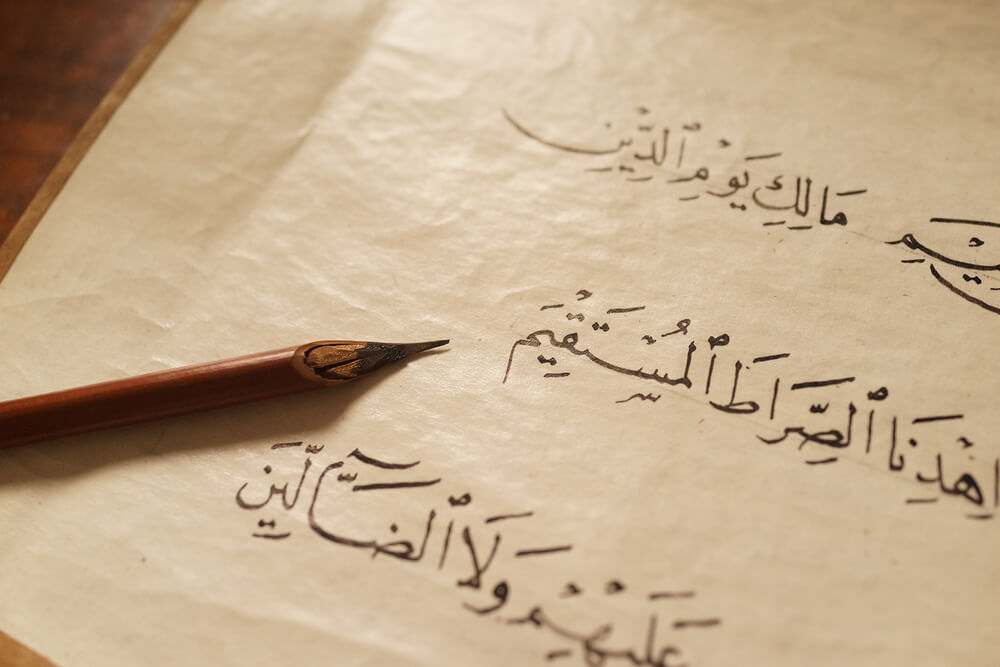 مَالِكِ يَوْمِ ٱلدِّيْنِ
اِهْدِنَا ٱلصِّرَاطَ ٱلْمُسْتَقِيْمَ
عَلَيْهِمْ وَلَا ٱلضَآلِّيَن